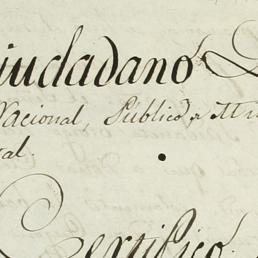 iudadano D
Nacional, Publico y
tal.
Certifico